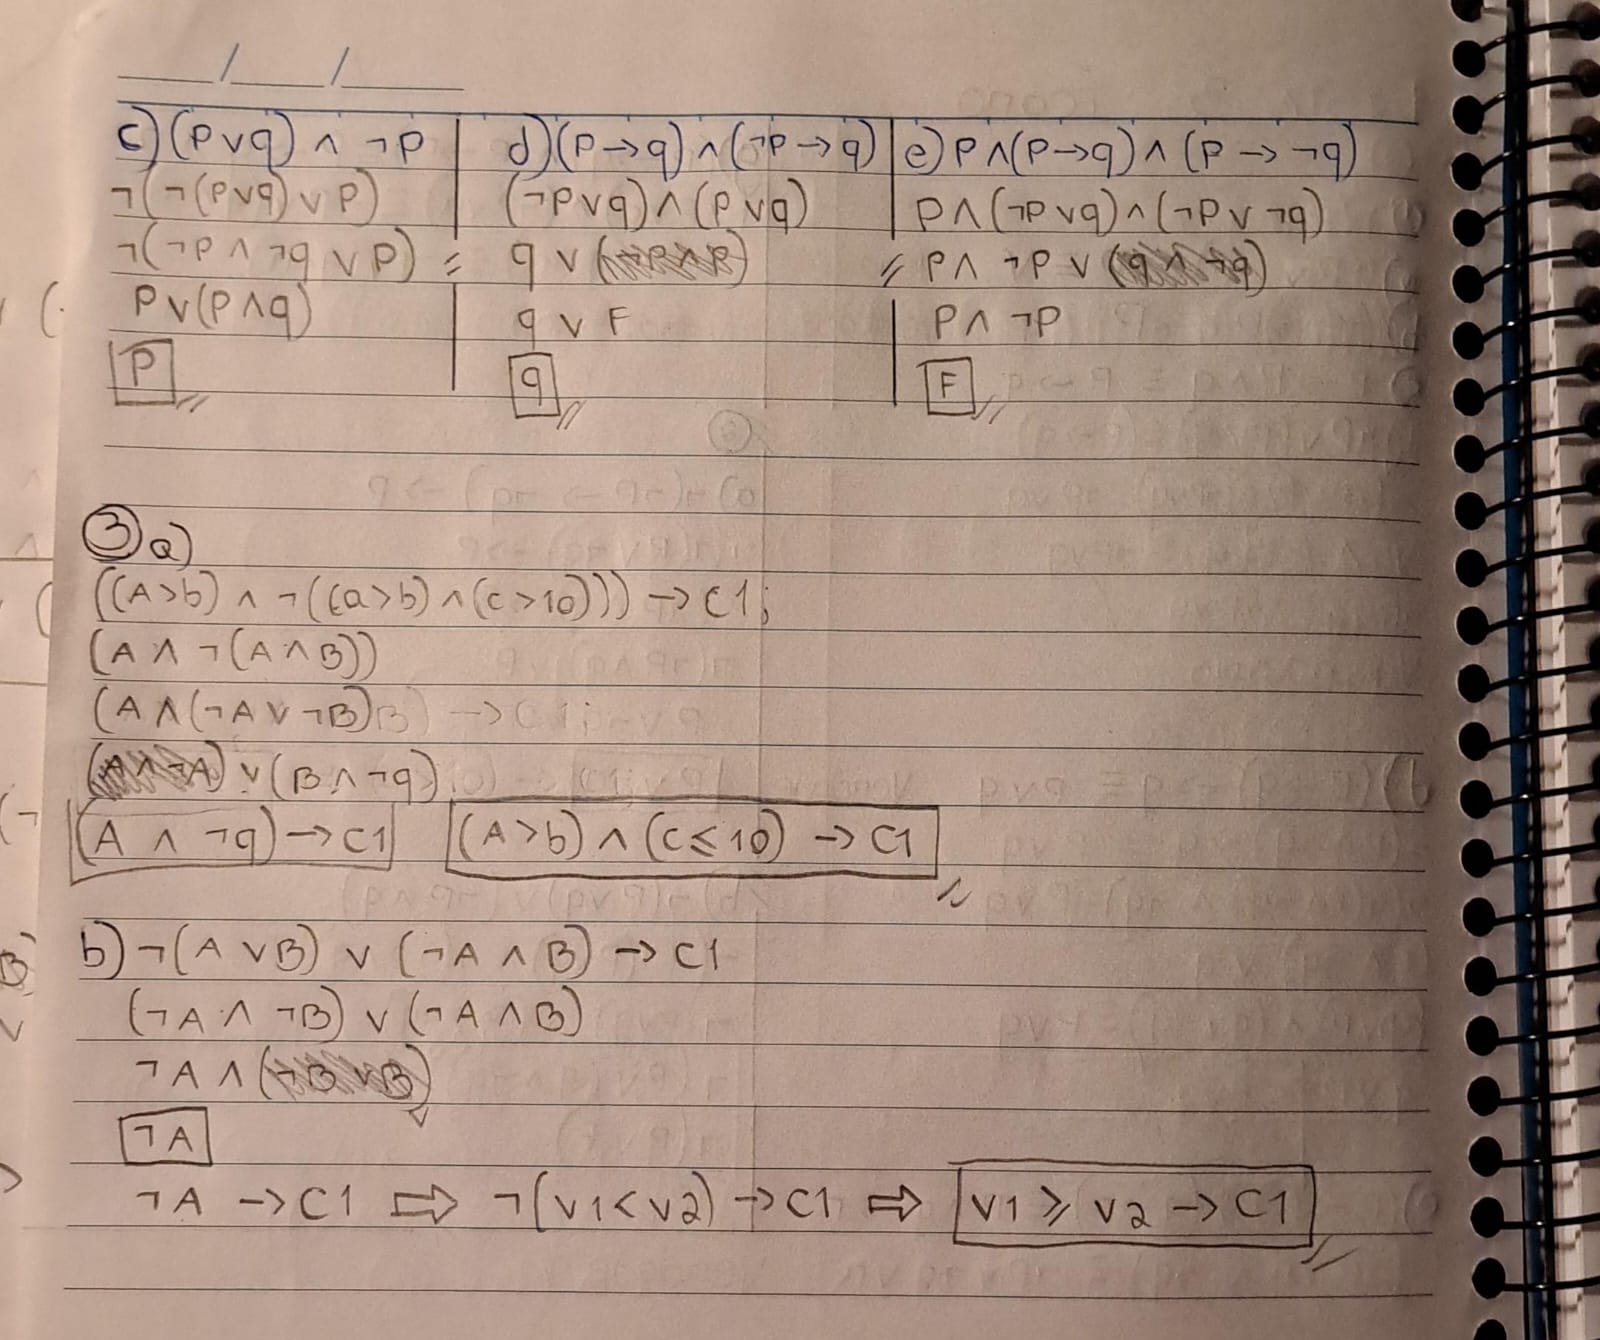 ___/___/___
c) (P∨q) ∧ ¬P
¬(¬(P∨q) ∨ P)
¬(¬P ∧ ¬q ∨ P) =
P∨(P∧q)
P
d) (P→q) ∧ (¬P→q)
(¬P∨q) ∧ (P∨q)
q ∨ (¬P∧P)
q ∨ F
q
e) P∧(P→q) ∧ (P → ¬q)
P∧(¬P∨q)∧(¬P∨¬q)
= P∧ ¬P ∨ (q ∧ ¬q)
P∧ ¬P
F
③ a)
((A>b) ∧ ¬((a>b) ∧ (c>10))) → C1;
(A ∧ ¬(A∧B))
(A ∧(¬A∨ ¬B)
(A∧¬A) ∨ (B∧¬q)
(A ∧ ¬q)→C1 (A>b) ∧ (C≤10) → C1
b) ¬(A∨B) ∨ (¬A ∧ B) → C1
(¬A ∧ ¬B) ∨ (¬A ∧ B)
¬A ∧ (¬B ∨ B)
V
¬A
¬A → C1 ⇨ ¬(V1<V2) → C1 ⇨ V1 ⩾ V2 → C1